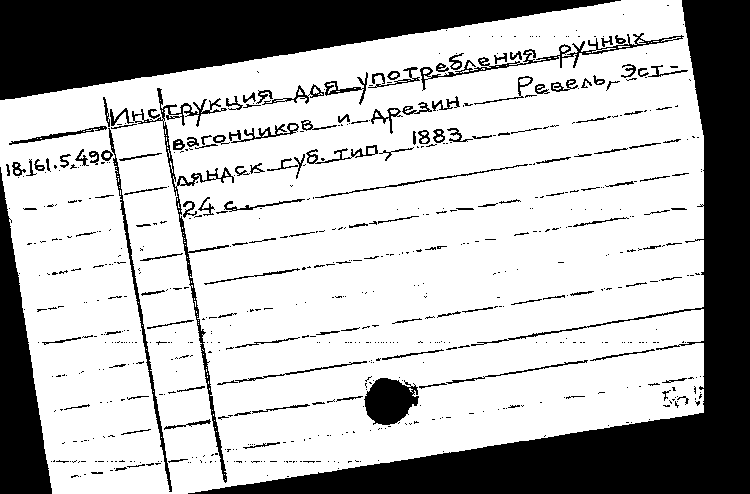 Инструкция для употребления ручных
18.161.5.490
вагончиков и дрезин. Ревель, Эст-
ляндск губ. тип., 1883.
24 с.